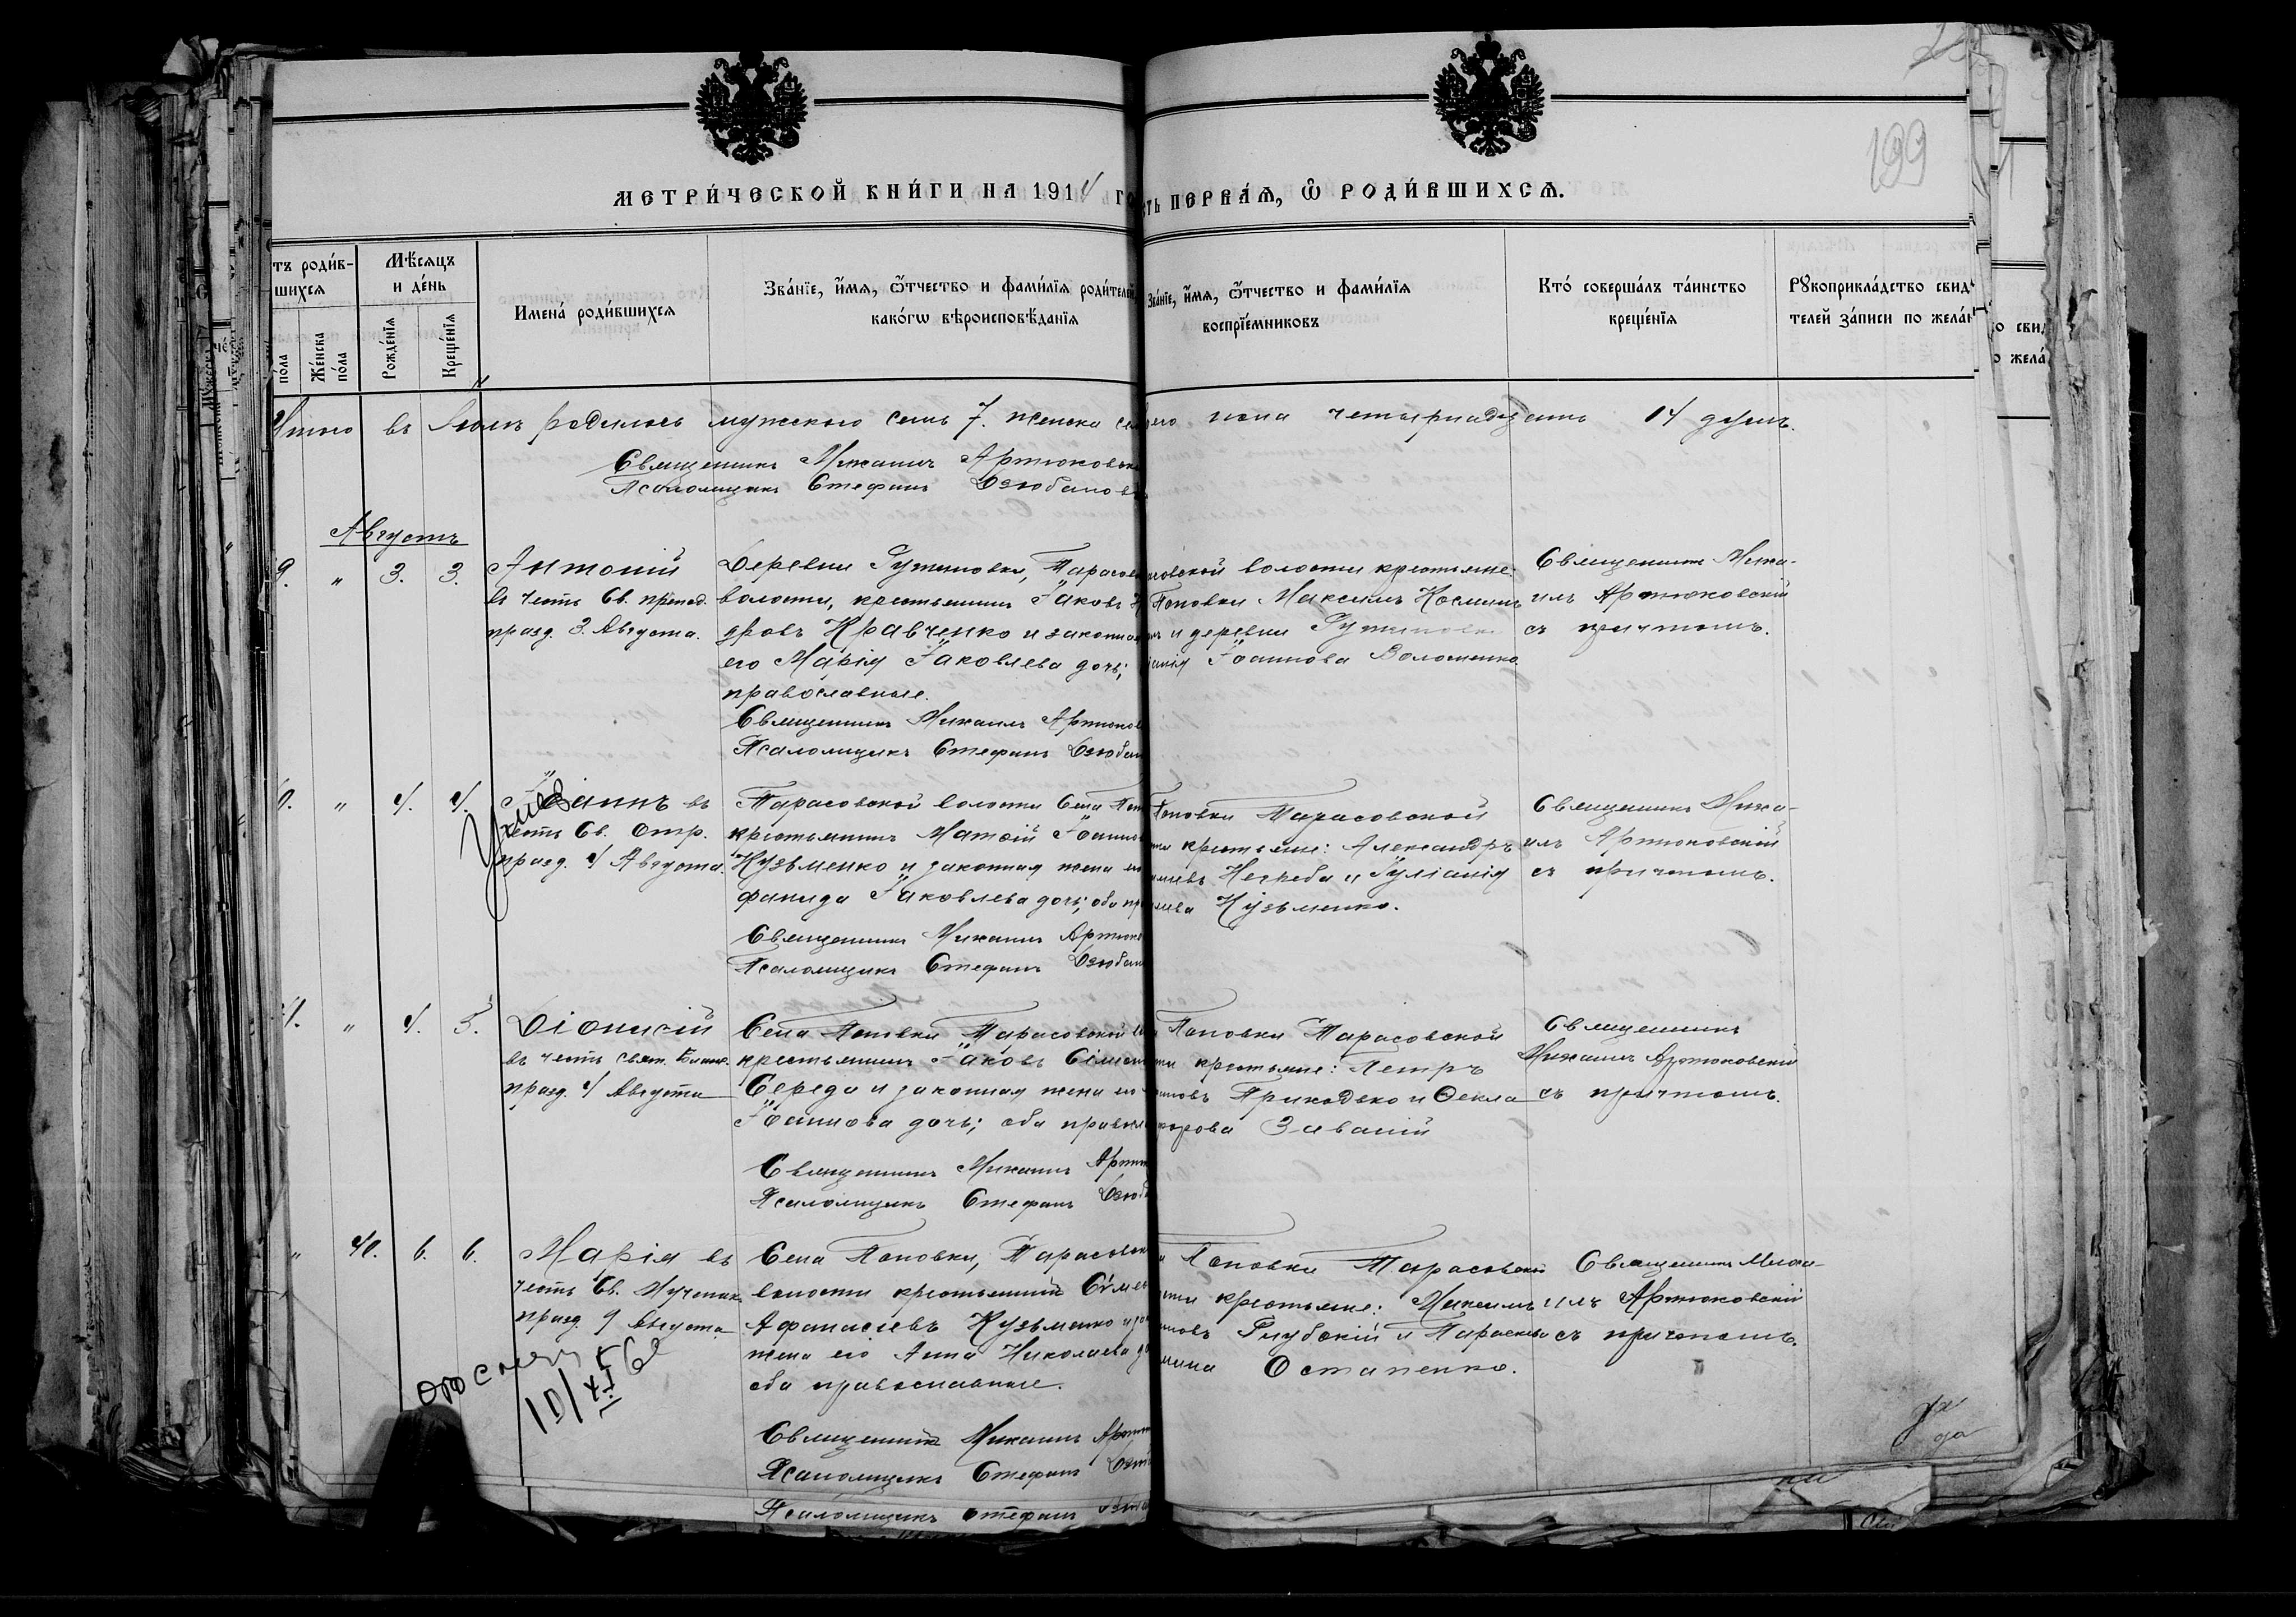 199
МЕТРИ́ЧЕСКОЙ КНИ́ГИ НА 1914 ГО
СТЬ ПЕРВА́Ѧ, Ѿ РОДИ́ВШИХСѦ.
тъ роди́в-
шихсѧ
Мѣ́сѧцъ
и де́нь
пола
Же́нска пола
Рожде́нїѧ
Креще́нїѧ
Имена̀ роди́вшихсѧ
Зва́нїе, и҆́мѧ, ѻ҆́тчество и фами́лїѧ роди́телей,
како́гѡ вѣроисповѣ́данїѧ
Зва́нїе, и҆́мѧ, ѻ҆́тчество и фами́лїѧ
воспрїе́мниковъ
Кто̀ соверша́лъ та́инство
креще́нїѧ
Рꙋкоприкла́дство свидѣ
телей за́писи по жела́н
Итого въ Іюлѣ родилось мужского семь 7. женска се
его пола четырнадцать 14 душъ.
Священникъ Михаилъ Артюховск
Псаломщикъ Стефанъ Дзюбанов
Августъ
9. " 3. 3.
Антоній
въ честь Св. препод.
празд. 3. Августа.
Деревни Гутыновки, Тарасов
волости, крестьянинъ Іаковъ
дровъ Кравченко и законная
его Марія Іаковлева дочь;
православные.
Священникъ Михаилъ Артюхов
Псаломщикъ Стефанъ Дзюбан
совской волости крестьяне:
Поповки Максимъ Косминъ
и деревни
Іоаннова Волошенко
Священникъ Миха-
илъ Артюховскій
съ причтомъ.
0. " 4. 4.
Іоаннъ въ
честь Св. Отр.
празд. 4 Августа.
Тарасовской волости Села Поп
крестьянинъ Матѳій Іоаннов
Кузьменко и законная жена его
фанида Іаковлева дочь; оба пр
Священникъ Михаилъ Артюхо
Псаломщикъ Стефанъ Дзюбан
Поповки Тарасовской
ти крестьяне: Александръ
Негреба и Іуліанія
Кузьменко.
Священникъ Миха-
илъ Артюховскій
съ причтомъ.
1. " 4. 5.
Діонисій
въ честь
празд. 4 Августа
Села Поповки Тарасовской
крестьянинъ Іаковъ Сімеон
Середа и законная жена его
Іоаннова дочь; оба правосл
Священникъ Михаилъ Артю
Псаломщикъ Стефанъ Дзюб
Поповки Тарасовской
ти крестьяне: Петръ
Приходько и Ѳекла
Священникъ
Михаилъ Артюховскій
съ причтомъ.
" 6. 6.
Марія въ
честь Св. Мучениц.
празд. 9 Августа
Села Поповки, Тарасовск
волости крестьянинъ Сѵме
Афанасіевъ Кузьменко и зак
жена его Анна Николаева д
оба православные.
Священникъ Михаилъ Артю
Псаломщикъ Стефанъ Дзю
Поповки Тарасовской
сти крестьяне: Максимъ
Глубокій и Параскева
Остапенко.
Священникъ Миха-
илъ Артюховскій
съ причтомъ.
10/XI 56
Псаломщикъ Стефанъ